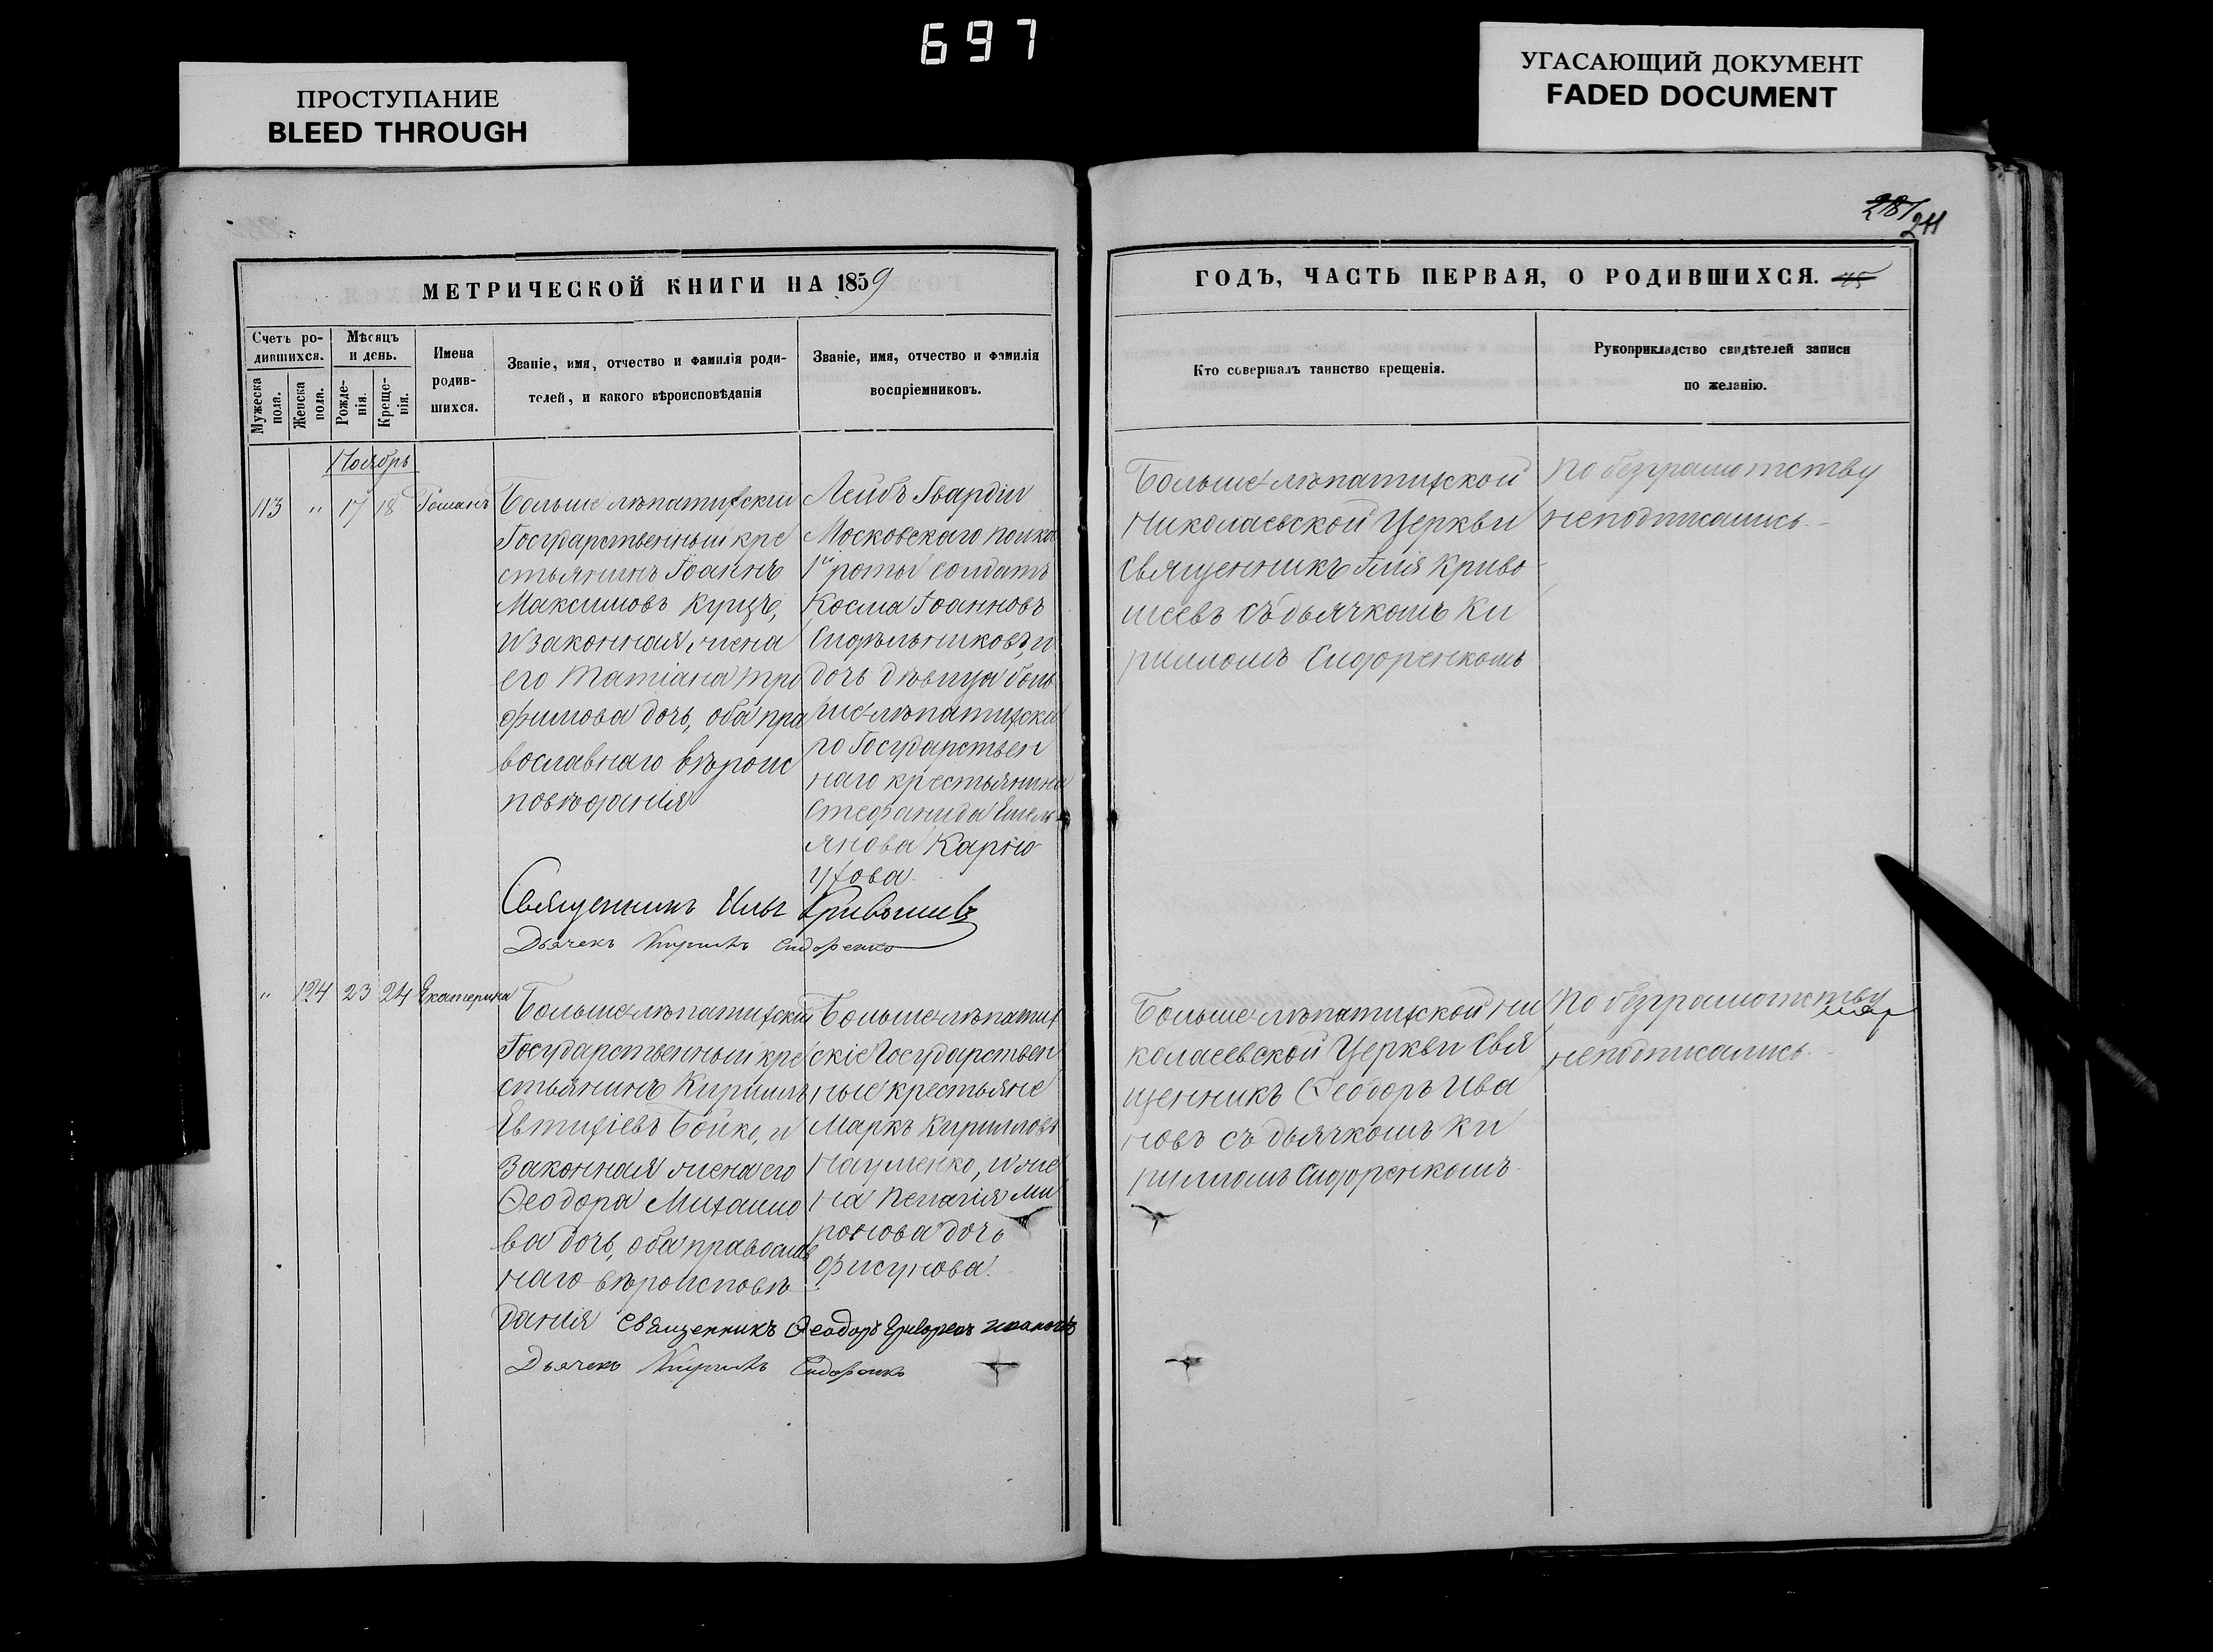 697
ПРОСТУПАНИЕ
BLEED THROUGH
УГАСАЮЩИЙ ДОКУМЕНТ
FADED DOCUMENT
241
МЕТРИЧЕСКОЙ КНИГИ НА 1859
ГОДЪ, ЧАСТЬ ПЕРВАЯ, О РОДИВШИХСЯ. 45
Счетъ ро-
дившихся.
Мужеска
пола.
Женска
пола.
Мѣсяцъ
и день.
Рожде-
нія.
Креще-
нія.
Имена
родив-
шихся.
Званіе, имя, отчество и фамилія роди-
телей, и какого вѣроисповѣданія
Званіе, имя, отчество и фамилія
воспріемниковъ.
Кто совершалъ таинство крещенія.
Рукоприкладство свидѣтелей записи
по желанію.
Ноябрь
113 " 17 18 Романъ
Больше лѣпатихскій
Государственный кре
стьянинъ Іоаннъ
Максимовъ Куцъ,
и законная жена
его Татіана Тро
фимова дочь, оба пра
вославнаго вѣроис
повѣданія
Лейбъ Гвардіи
Московскаго полка
1й роты солдатъ
Косма Іоанновъ
Сидѣльниковъ, и
дочь дѣвица боль
ше-лѣпатихска
го Государствен
наго крестьянина
Стефанида Емель
янова Карно
ухова.
Больше-лѣпатихской
Николаевской Церкви
священникъ Илія Криво
шеевъ съ дьячкомъ Ки
рилломъ Сидоренкомъ
По безграмотству
неподписались.-
Священникъ Илья Кривошеевъ
Дьячекъ Кириллъ Сидоренко
" 124 23 24 Екатерина
Больше-лѣпатихскій
Государственный кре
стьянинъ Кириллъ
Евтихіевъ Бойко, и
законная жена его
Ѳеодора Михаило
ва дочь, оба православ
наго вѣроисповѣ
данія
Больше-лѣпатих
скіе Государствен
ные крестьяне
Маркъ Кирилловъ
Науменко, и же
на Пелагія Ми
ронова дочь
Фисунова.
Больше-лѣпатихской Ни
колаевской Церкви Свя
щенникъ Ѳеодоръ Ива
новъ съ дьячкомъ Ки
рилломъ Сидоренкомъ.
По безграмотству
неподписались.-
Священникъ Ѳеодоръ
Дьячекъ Кириллъ Сидоренко